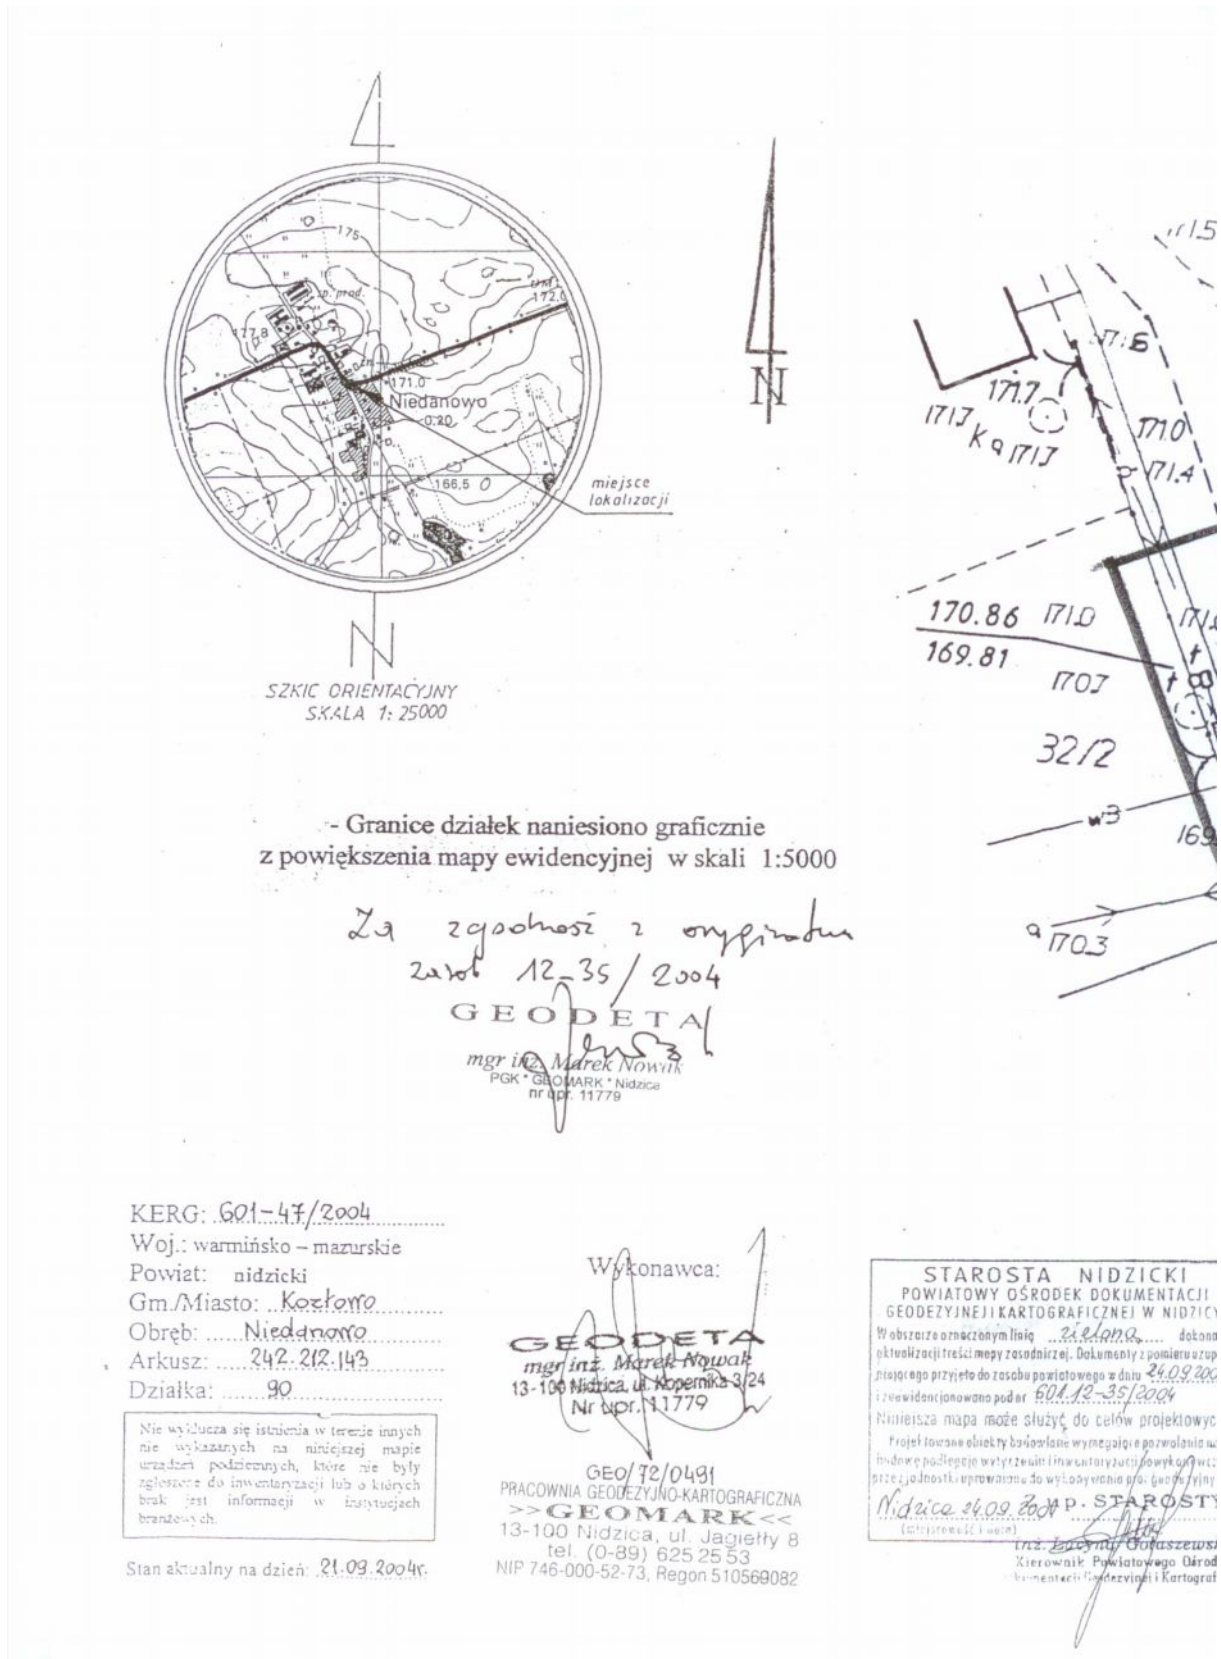 175
zp. prod.
172,0
177,8
171,0
Niedanowo
0,20
166,5
miejsce
lokalizacji
N
N
SZKIC ORIENTACYJNY
SKALA 1:25000
171.7
171.0
171.4
170.86
171.0
169.81
170.7
32/2
w3
169
170.3
- Granice działek naniesiono graficznie
z powiększenia mapy ewidencyjnej w skali 1:5000
Za zgodność z oryginałem
zasob 12-35/2004
GEODETA
mgr inż. Marek Nowak
PGK "GEOMARK" Nidzica
nr upr. 11779
KERG: 601-47/2004
Woj.: warmińsko – mazurskie
Powiat: nidzicki
Gm./Miasto: Kozłowo
Obręb: Niedanowo
Arkusz: 242.212.143
Działka: 90
Nie wyklucza się istnienia w terenie innych
nie wykazanych na niniejszej mapie
urządzeń podziemnych, które nie były
zgłoszone do inwentaryzacji lub o których
brak jest informacji w instytucjach
branżowych.
Stan aktualny na dzień: 21.09.2004r.
Wykonawca:
GEODETA
mgr inż. Marek Nowak
13-100 Nidzica, ul. Kopernika 3/24
Nr upr. 11779
GEO/72/0491
PRACOWNIA GEODEZYJNO-KARTOGRAFICZNA
>>GEOMARK<<
13-100 Nidzica, ul. Jagiełły 8
tel. (0-89) 625 25 53
NIP 746-000-52-73, Regon 510569082
STAROSTA NIDZICKI
POWIATOWY OŚRODEK DOKUMENTACJI
GEODEZYJNEJ I KARTOGRAFICZNEJ W NIDZICY
W obszarze oznaczonym linią zieloną dokona
aktualizacji treści mapy zasadniczej. Dokumenty z pomiaru uzup
niającego przyjęto do zasobu powiatowego w dniu 24.09.200
i zaewidencjonowano pod nr 601.12-35/2004
Niniejsza mapa może służyć do celów projektowyc
Projektowane obiekty budowlane wymagające pozwolenia na
budowę podlegają wytyczeniu i inwentaryzacji powykonawcz
przez jednostki uprawnione do wykonywania prac geodezyjny
Nidzica 24.09.2004 z up. STAROSTY
(miejscowość i data)
inż. Gołaszewsk
Kierownik Powiatowego Ośrod
kumentacji Geodezyjnej i Kartograf